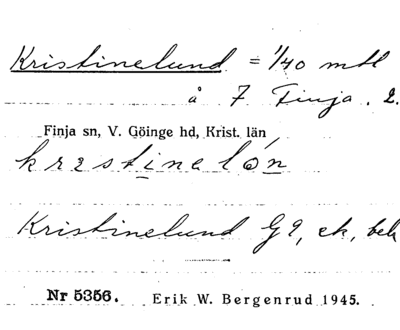 Kristinelund = 1/40 mtl
å 7 Finja. 2.
Finja sn, V. Göinge hd, Krist. län
krestinelón
Kristinelund G9, ek, beb
Nr 5356. Erik W. Bergenrud 1945.